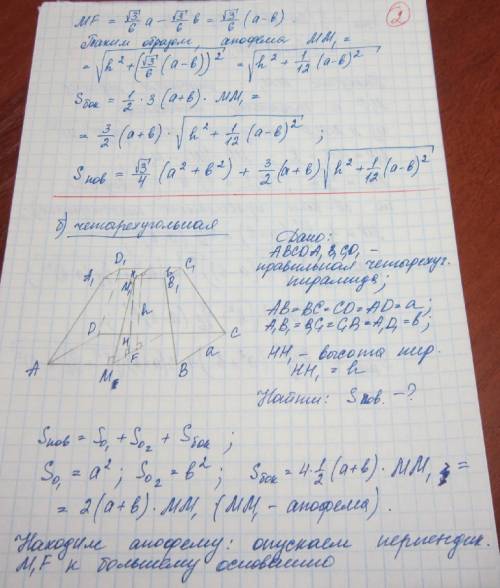 2
MF = √3/6 a − √3/6 b = √3/6 (a−b).
Таким образом, апофема MM₁ =
= √(h² + (√3/6 (a−b))²) = √(h² + 1/12 (a−b)²)
Sбок = 1/2 · 3 (a+b) · MM₁ =
= 3/2 (a+b) · √(h² + 1/12 (a−b)²) ;
Sпов = √3/4 (a² + b²) + 3/2 (a+b) √(h² + 1/12 (a−b)²)
б) четырехугольная
D₁ C₁
A₁ H₁ b
M₁ B₁
h
D C
H
A M F B a
Дано:
ABCDA₁B₁C₁D₁ –
правильная четырехуг.
пирамида;
AB = BC = CD = AD = a ;
A₁B₁ = B₁C₁ = C₁D₁ = A₁D₁ = b ;
HH₁ – высота пир.
HH₁ = h
Найти: Sпов. – ?
Sпов = S₀₁ + S₀₂ + Sбок ;
S₀₁ = a² ; S₀₂ = b² ; Sбок = 4 · 1/2 (a+b) · MM₁ =
= 2(a+b) · MM₁ (MM₁ – апофема).
Находим апофему: опускаем перпендик.
M₁F к большему основанию